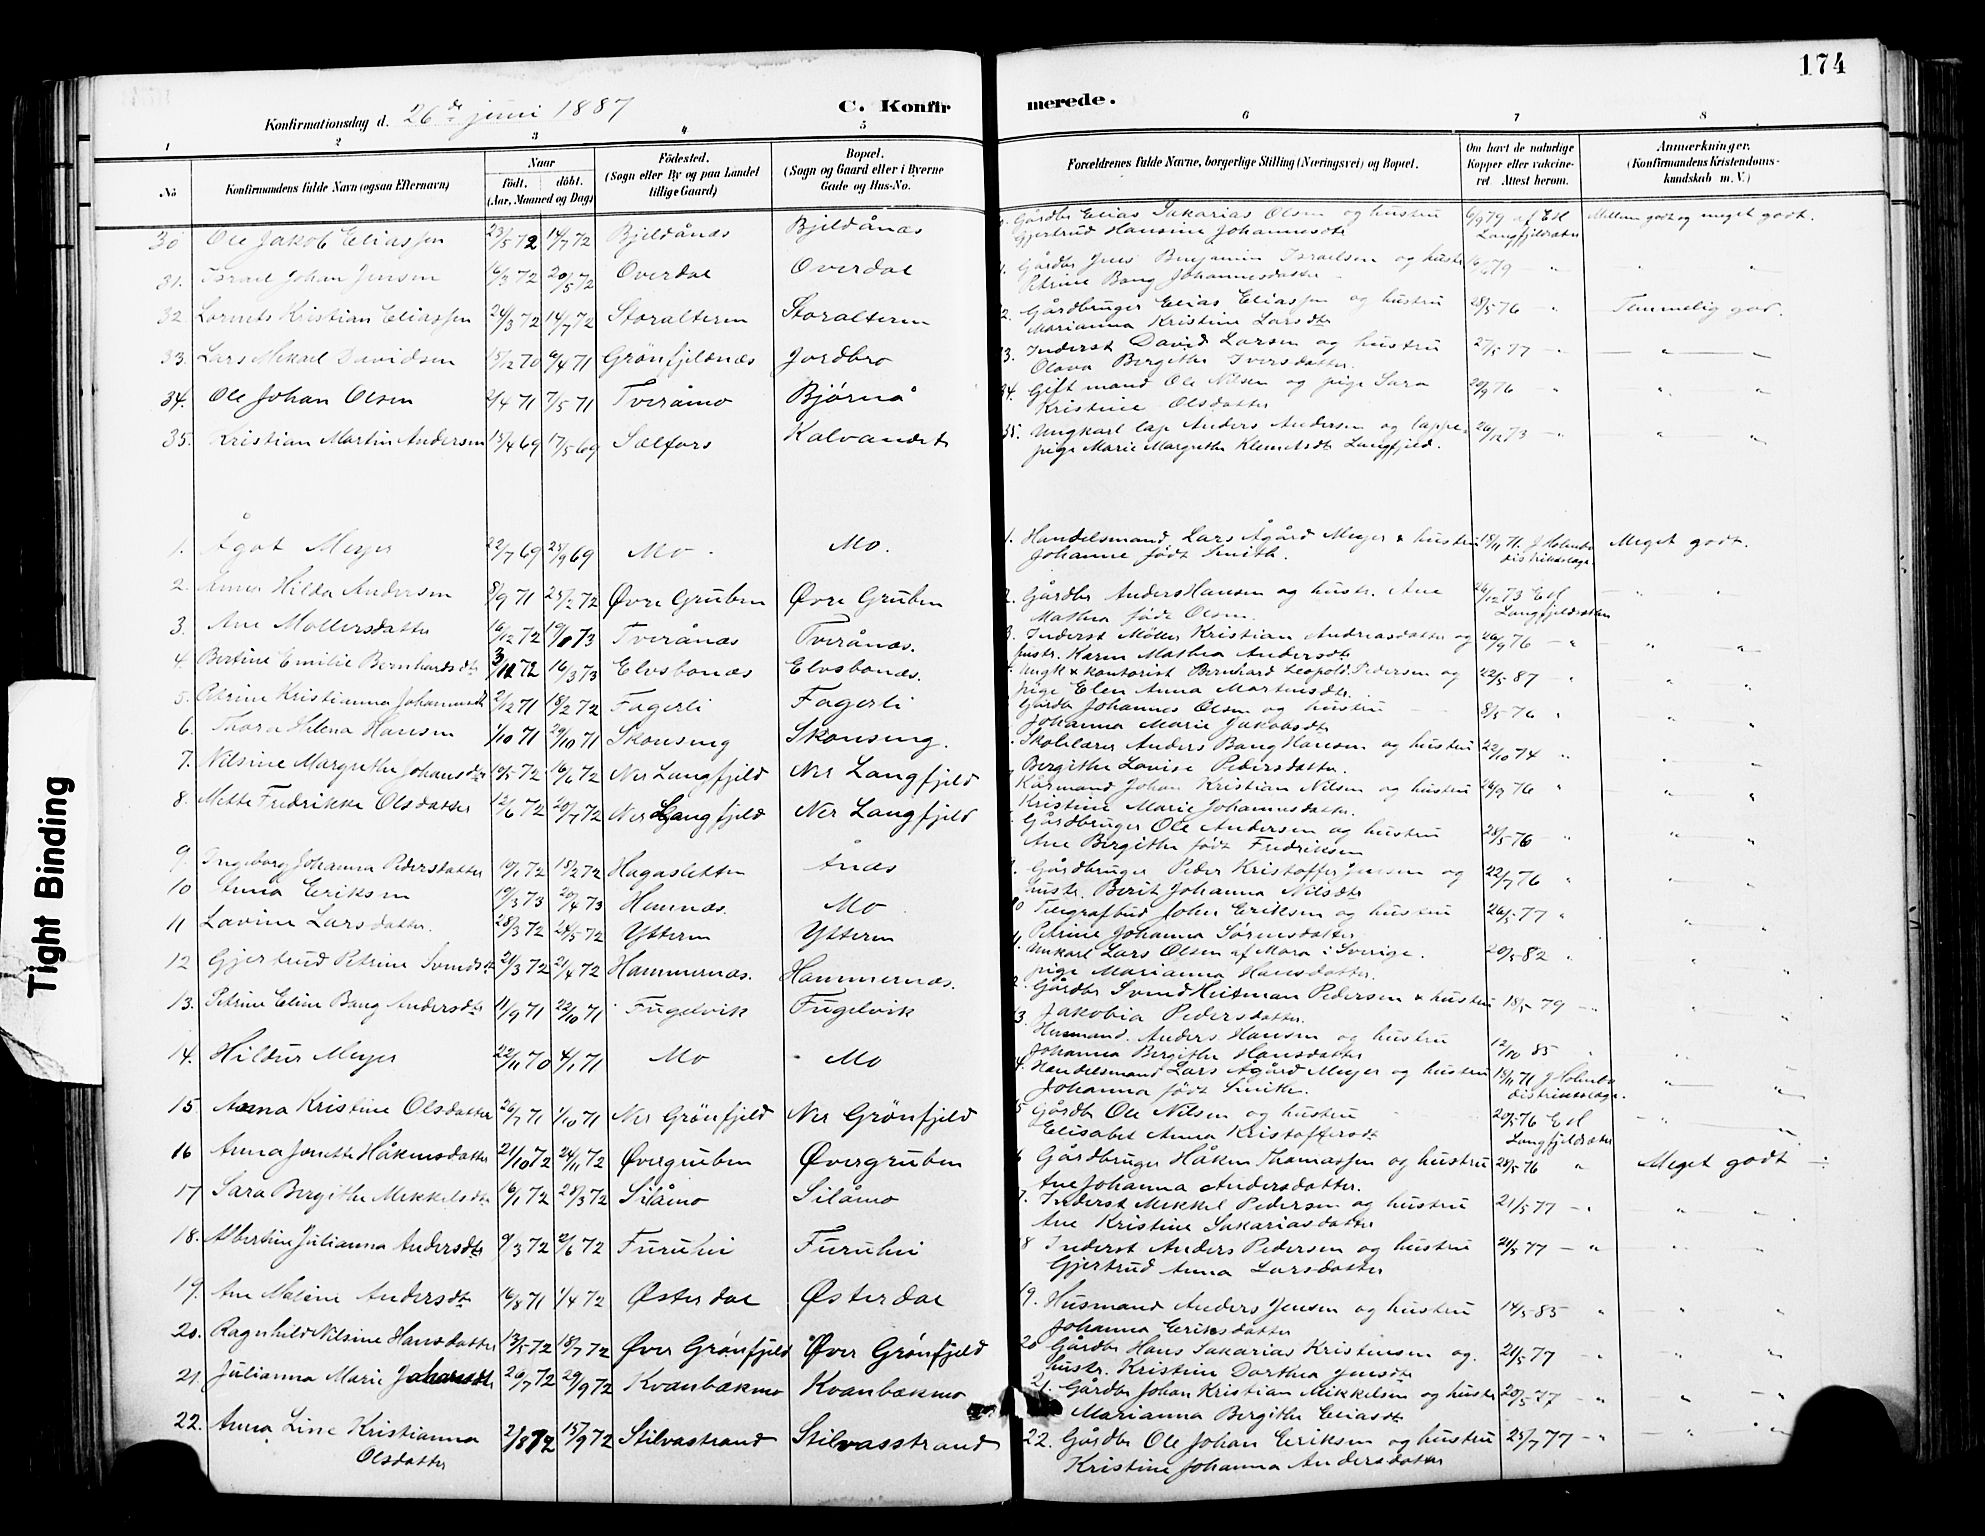 174
Konfirmationsdag d. 26de juni 1887
C. Konfirmerede.
1 2 3 4 5 6 7 8
No
Konfirmandens fulde Navn (ogsaa Efternavn)
Naar født. døbt. (Aar, Maaned og Dag)
Fødested. (Sogn eller By og paa Landet tillige Gaard)
Bopæl. (Sogn og Gaard eller i Byerne Gade og Hus-No.
Forældrenes fulde Navne, borgerlige Stilling (Næringsvei) og Bopæl.
Om havt de naturlige Kopper eller vakcineret. Attest herom.
Anmærkninger. (Konfirmandens Kristendomskundskab m. V.)
30 Ole Jakob Eliassen 23/5 72 14/7 72 Bjeldånæs Bjeldånæs Gårdbr Elias Sakarias Olsen og hustru Gjertrud Hansine Johannesdt 6/9 79 af EH Langfjeldsæter Mellem godt og meget godt.
31. Israel Johan Jensen 16/3 72 20/5 72 Overdal Overdal Gårdbr Jens Benjamin Israelsen og hustr Petrine Bang Johannesdatter
32 Lornts Kristian Eliassen 24/3 72 14/7 72 Storalteren Storalteren 2. Gårdbruger Elias Eliassen og hustru Marianna Kristine Larsdtr 28/5 76 Temmelig god.
33. Lars Mikael Davidsen 15/12 70 6/4 71 Grönfjeldnæs Jordbro 3. Inderst David Larsen og hustru Olava Bergithe Iversdatter. 27/5 77
34. Ole Johan Olsen 2/4 71 7/5 71 Tveråmo Bjørnå 34. Gift mand Ole Nilsen og pige Sara Kristine Olsdatter 20/9 76
35. Kristian Martin Andersen 15/4 69 17/5 69 Selfors Kalvandet 35. Ungkarl lap Anders Andersen og lappepige Marie Margrethe Klemetsdt Langfjeld. 26/12 73
1. Ågot Meyer 22/7 69 25/9 69 Mo. Mo. 1. Handelsmand Lars Ågård Meyer & hustru Johanne født Smith. 18/11 71. J Holmbo distriktslæge Meget godt.
2. Anna Hilda Andersen 8/9 71 25/2 72 Øvre Gruben Øvre Gruben 2. Gårdbr Anders Hansen og hustr. Ane Mathea føde Olsen 26/12 73 EH Langfjeldsæter
3. Ane Mollersdatter 16/12 72 19/1 73 Tverånæs Tverånæs. 3. Inderst Möller Kristian Andreasdatter og hustr. Karen Mathea Andersdtr 26/9 76
4. Bertine Emilie Bernhardsdt 3/11 72 16/3 73 Elvsbonæs Elvsbonæs. Ungk & kontorist Bernhard Leopold Pedersen og pige Elen Anna Martinsdtr. 22/5 87
5. Petrine Kristianna Johannesdt 2/12 71 18/2 72 Fagerli Fagerli Gårdbr Johannes Olsen og hustru Johanna Marie Jakobsdt 8/5 76
6. Thora Helena Hansen 1/10 71 29/10 71 Skonseng Skonseng. Skolelærer Anders Bang Hansen og hustru Bergithe Lovise Pedersdatter. 22/10 74
7. Nilsine Margrethe Johansdtr 19/5 72 16/6 72 Ner Langfjeld Ner Langfjeld 7 Kårmand Johan Kristian Nilsen og hustru Kristine Marie Johannesdatter. 24/9 76
8. Mette Fredrikke Olsdatter 12/6 72 20/7 72 Ner Langfjeld Ner Langfjeld Gårdbruger Ole Andersen og hustru Ane Birgithe født Fredriksen 28/5 76
9. Ingeborg Johanna Pedersdatter 19/1 72 18/2 72 Hagasletten Ånæs Gårdbruger Peder Kristoffer Jensen og hustr. Berit Johanna Nilsdtr 22/7 76
10 Anna Eriksen 19/3 73 20/4 73 Hemnæs. Mo 10 Telegrafbud John Eriksen og hustru Petrine Johanna Sörensdatter 26/5 77
11 Lavine Larsdatter. 28/3 72 24/5 72 Ytteren Ytteren 11. Unkarl Lars Olsen af Mora i Sverige. pige Marianna Hansdatter. 20/5 82
12 Gjertrud Petrine Svendsdt 21/3 72 21/4 72 Hammernæs. Hammernæs. 2. Gårdbr Svend Heitman Pedersen & hustru Jakobia Pedersdatter. 18/5 79
13. Petrine Eline Bang Andersdtr 11/9 71 22/10 71 Fugelvik Fugelvik 13. Husmand. Anders Hansen og hustru Johanna Bergithe Hansdatter 12/10 85
14. Hildur Meyer 22/11 70 4/1 71 Mo Mo 4. Handelsmand Lars Ågård Meyer og hustru Johanna født Smith. 18/11 71 J Holmbo distriktslæge.
15. Anna Kristine Olsdatter 26/7 71 1/10 71 Ner Grönfjeld Ner Grönfjeld 15 Gårdbr Ole Nilsen og hustru Elisabet Anna Kristoffersdt 20/5 76 EH Langfjeldsæter
16 Anna Jonette Håkensdatter 21/10 72 24/11 72 Øvergruben Øvergruben 6 Gårdbruger Håken Thomassen og hustru Ane Johanna Andersdatter. 28/5 76 Meget godt ÷
17 Sara Bergithe Mikkelsdt 16/1 72 28/3 72 Silåmo Silåmo 7. Inderst Mikkel Pedersen og hustru Ane Kristine Sakariasdatter 21/5 77
18. Albertine Julianna Andersdtr 9/3 72 2/6 72 Furuhei Furuhei 18 Inderst Anders Pedersen og hustru Gjertrud Anna Larsdatter 21/5 77
19. Ane Malene Andersdtr 16/8 71 1/4 72 Østerdal Østerdal 19. Husmand Anders Jensen og hustru Johanna Eriksdatter 14/5 85
20. Ragnhild Nilsine Hansdatter 13/5 72 18/7 72 Øver Grönfjeld Øver Grönfjeld 20 Gårdbr Hans Sakarias Kristensen og. hustr. Kristine Dorthea Jensdt 21/5 77
21 Julianna Marie Johansdt 26/7 72 29/9 72 Kvanbækmo Kvanbækmo 21. Gårdbr Johan Kristian Mikkelsen og hustr Marianna Bergithe Eliasdt 20/5 77
22. Anna Line Kristianna Olsdatter 2/8 72 15/9 72 Stilvastrand Stilvasstrand 22. Gårdbr Ole Johan Eriksen og hustru Kristine Johanna Andersdatter 25/7 77
Tight Binding